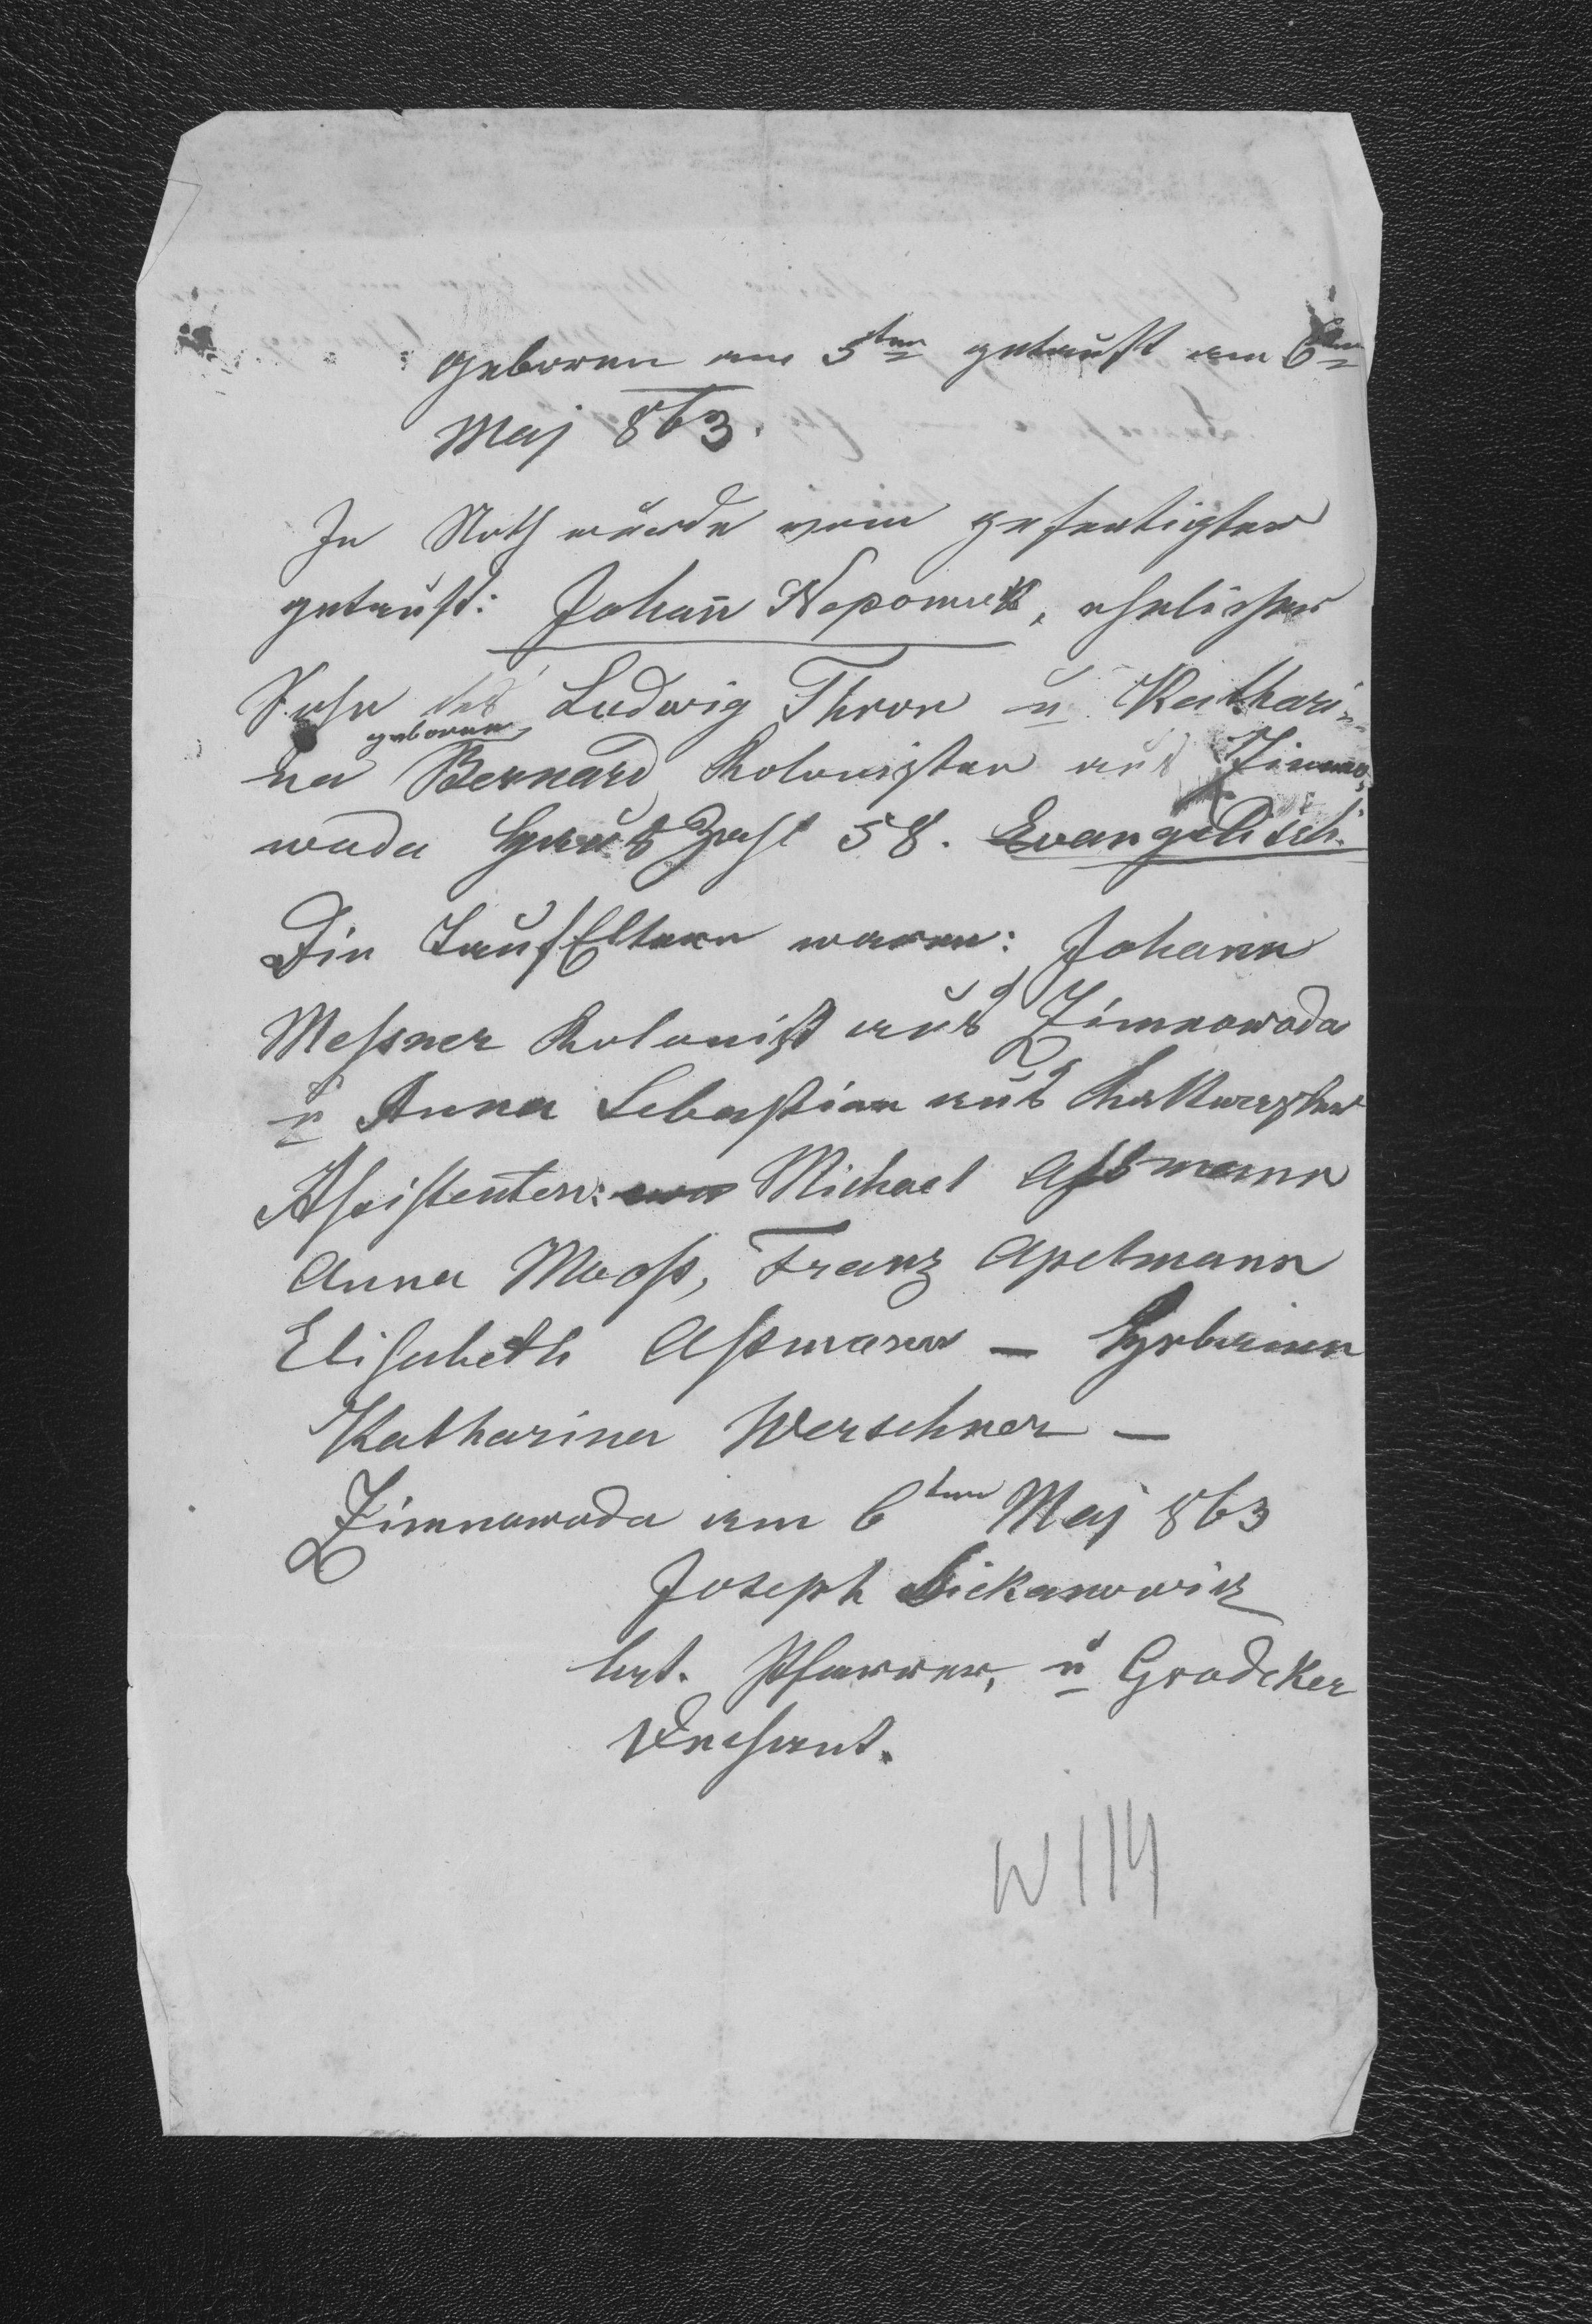 geboren am 5ten getauft am 6ten
Maj 863.
In Noth wurde vom gefertigten
getauft: Johann Nepomuk, ehelicher
Sohn des Ludwig Thron u Kathari-
geboren
na Bernard Kolonisten aus Zimno,
woda Haus Zahl 58. Evangelisch.
Die Tauf Eltern waren: Johann
Messner Kolonist aus Zimnowoda
u Anna Sebastian aus
Assistenten: Michael Assmann
Anna Mooss, Franz Apelmann
Elisabeth Assmann — Hebamme
Katharina Werschner —
Zimnowoda am 6ten Maj 863
Joseph Sickanowicz
lat. Pfarrer, u Grodeker
Dechant.
W 114